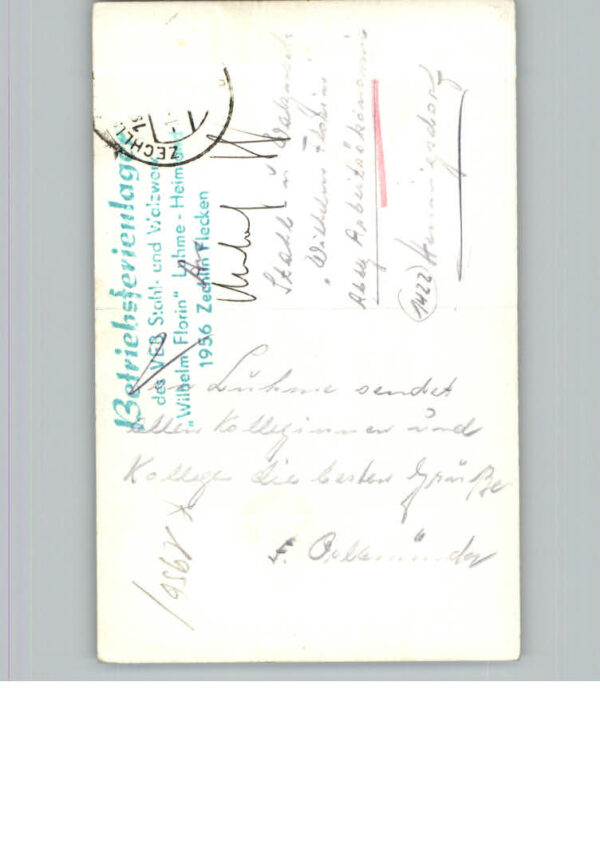 Betriebsferienlager
des VEB Stahl- und Walzwerk
„Wilhelm Florin" Luhme - Heimland
1956 Zechlin Flecken
ZECHLIN
An
Stahl u. Walzwerk
„Wilhelm Florin"
Abtlg Arbeitsökonomie
1422 Hennigsdorf
Aus Luhme sendet
allen Kolleginnen und
Kollegen die besten Grüße